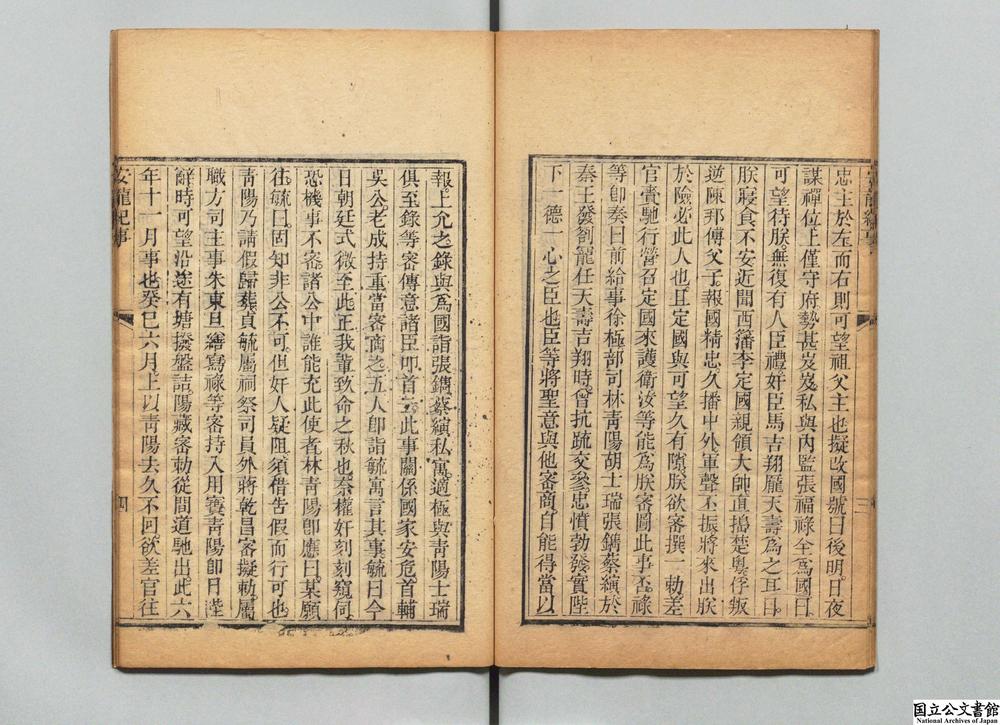 忠主於左而右則可望祖父主也擬改國號曰後明日夜
謀禪位上僅守府勢甚岌岌私與內監張福祿全為國曰
可望待朕無復有人臣禮奸臣馬吉翔龐天壽為之耳目
朕寢食不安近聞西籓李定國親領大師直搗楚粵俘叛
逆陳邦傅父子報國精忠久播中外軍聲丕振將來出朕
於險必此人也且定國與可望久有隙朕欲密撰一勅差
官賫馳行營召定國來護衛汝等能為朕密圖此事否祿
等卽奏曰前給事徐極部司林青陽胡士瑞張鐫蔡縯於
秦王發劄寵任天壽吉翔時曾抗疏交參忠憤勃發實陛
下一德一心之臣也臣等將聖意與他密商自能得當以
三
報上允之錄與為國詣張鐫蔡縯私寓適極與青陽士瑞
俱至錄等密傳意諸臣叩首云此事關係國家安危首輔
吳公老成持重當密商之五人卽詣毓寓言其事毓曰今
日朝廷式微至此正我輩致命之秋也奈權奸刻刻窺伺
恐機事不密諸公中誰能充此使者林青陽卽應曰某願
往毓曰固知非公不可但奸人疑阻須借告假而行可也
青陽乃請假歸葬貞毓屬祠祭司員外將乾昌密擬勅屬
職方司主事朱東旦繕寫祿等密持入用寶青陽卽日陛
辭時可望沿途有塘撥盤詰陽藏密勅從間道馳出此六
年十一月事也癸巳六月上以青陽去久不囘欲差官往
安龍紀事
四
国立公文書館
National Archives of Japan